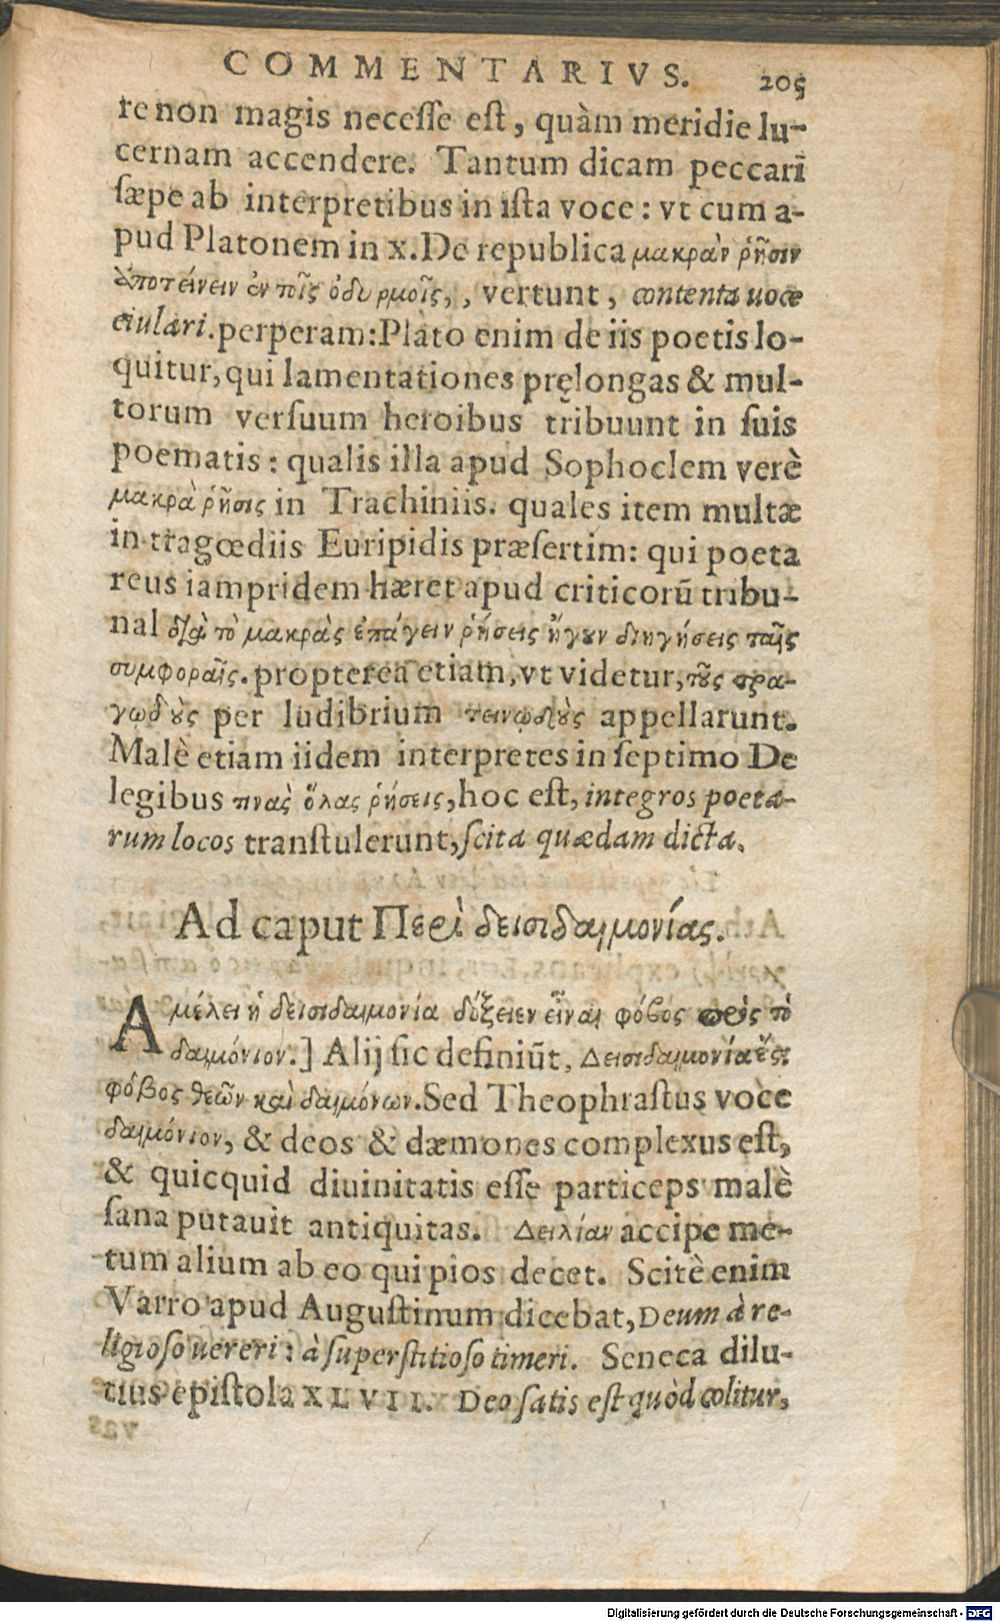 COMMENTARIVS. 205
re non magis necesse est, quàm meridie lu-
cernam accendere. Tantum dicam peccari
sæpe ab interpretibus in ista voce: vt cum a-
pud Platonem in x. De republica μακρὰν ῥῆσιν
ἀποτείνειν ἐν τοῖς ὀδυρμοῖς, , vertunt, contenta uoce
eiulari. perperam: Plato enim de iis poetis lo-
quitur, qui lamentationes pręlongas & mul-
torum versuum heroibus tribuunt in suis
poematis: qualis illa apud Sophoclem verè
μακρὰ ῥῆσις in Trachiniis. quales item multæ
in tragœdiis Euripidis præsertim: qui poeta
reus iampridem hæret apud criticorũ tribu-
nal διὰ τὸ μακρὰς ἐπάγειν ῥήσεις ἤγουν διηγήσεις ταῖς
συμφοραῖς. propterea etiam, vt videtur, τοὺς τρα-
γῳδοὺς per ludibrium τεινῳδοὺς appellarunt.
Malè etiam iidem interpretes in septimo De
legibus τινὰς ὅλας ῥήσεις, hoc est, integros poeta-
rum locos transtulerunt, scita quædam dicta.
Ad caput Περὶ δεισιδαιμονίας.
Ἀμέλει ἡ δεισιδαιμονία δόξειεν εἶναι φόβος πρὸς τὸ
δαιμόνιον.] Alij sic definiũt, Δεισιδαιμονία ἐστὶ
φόβος θεῶν καὶ δαιμόνων. Sed Theophrastus voce
δαιμόνιον, & deos & dæmones complexus est,
& quicquid diuinitatis esse particeps malè
sana putauit antiquitas. Δειλίαν accipe me-
tum alium ab eo qui pios decet. Scitè enim
Varro apud Augustinum dicebat, Deum à re-
ligioso uereri: à superstitioso timeri. Seneca dilu-
tius epistola XLVII. Deo satis est quòd colitur,
Digitalisierung gefördert durch die Deutsche Forschungsgemeinschaft - DFG